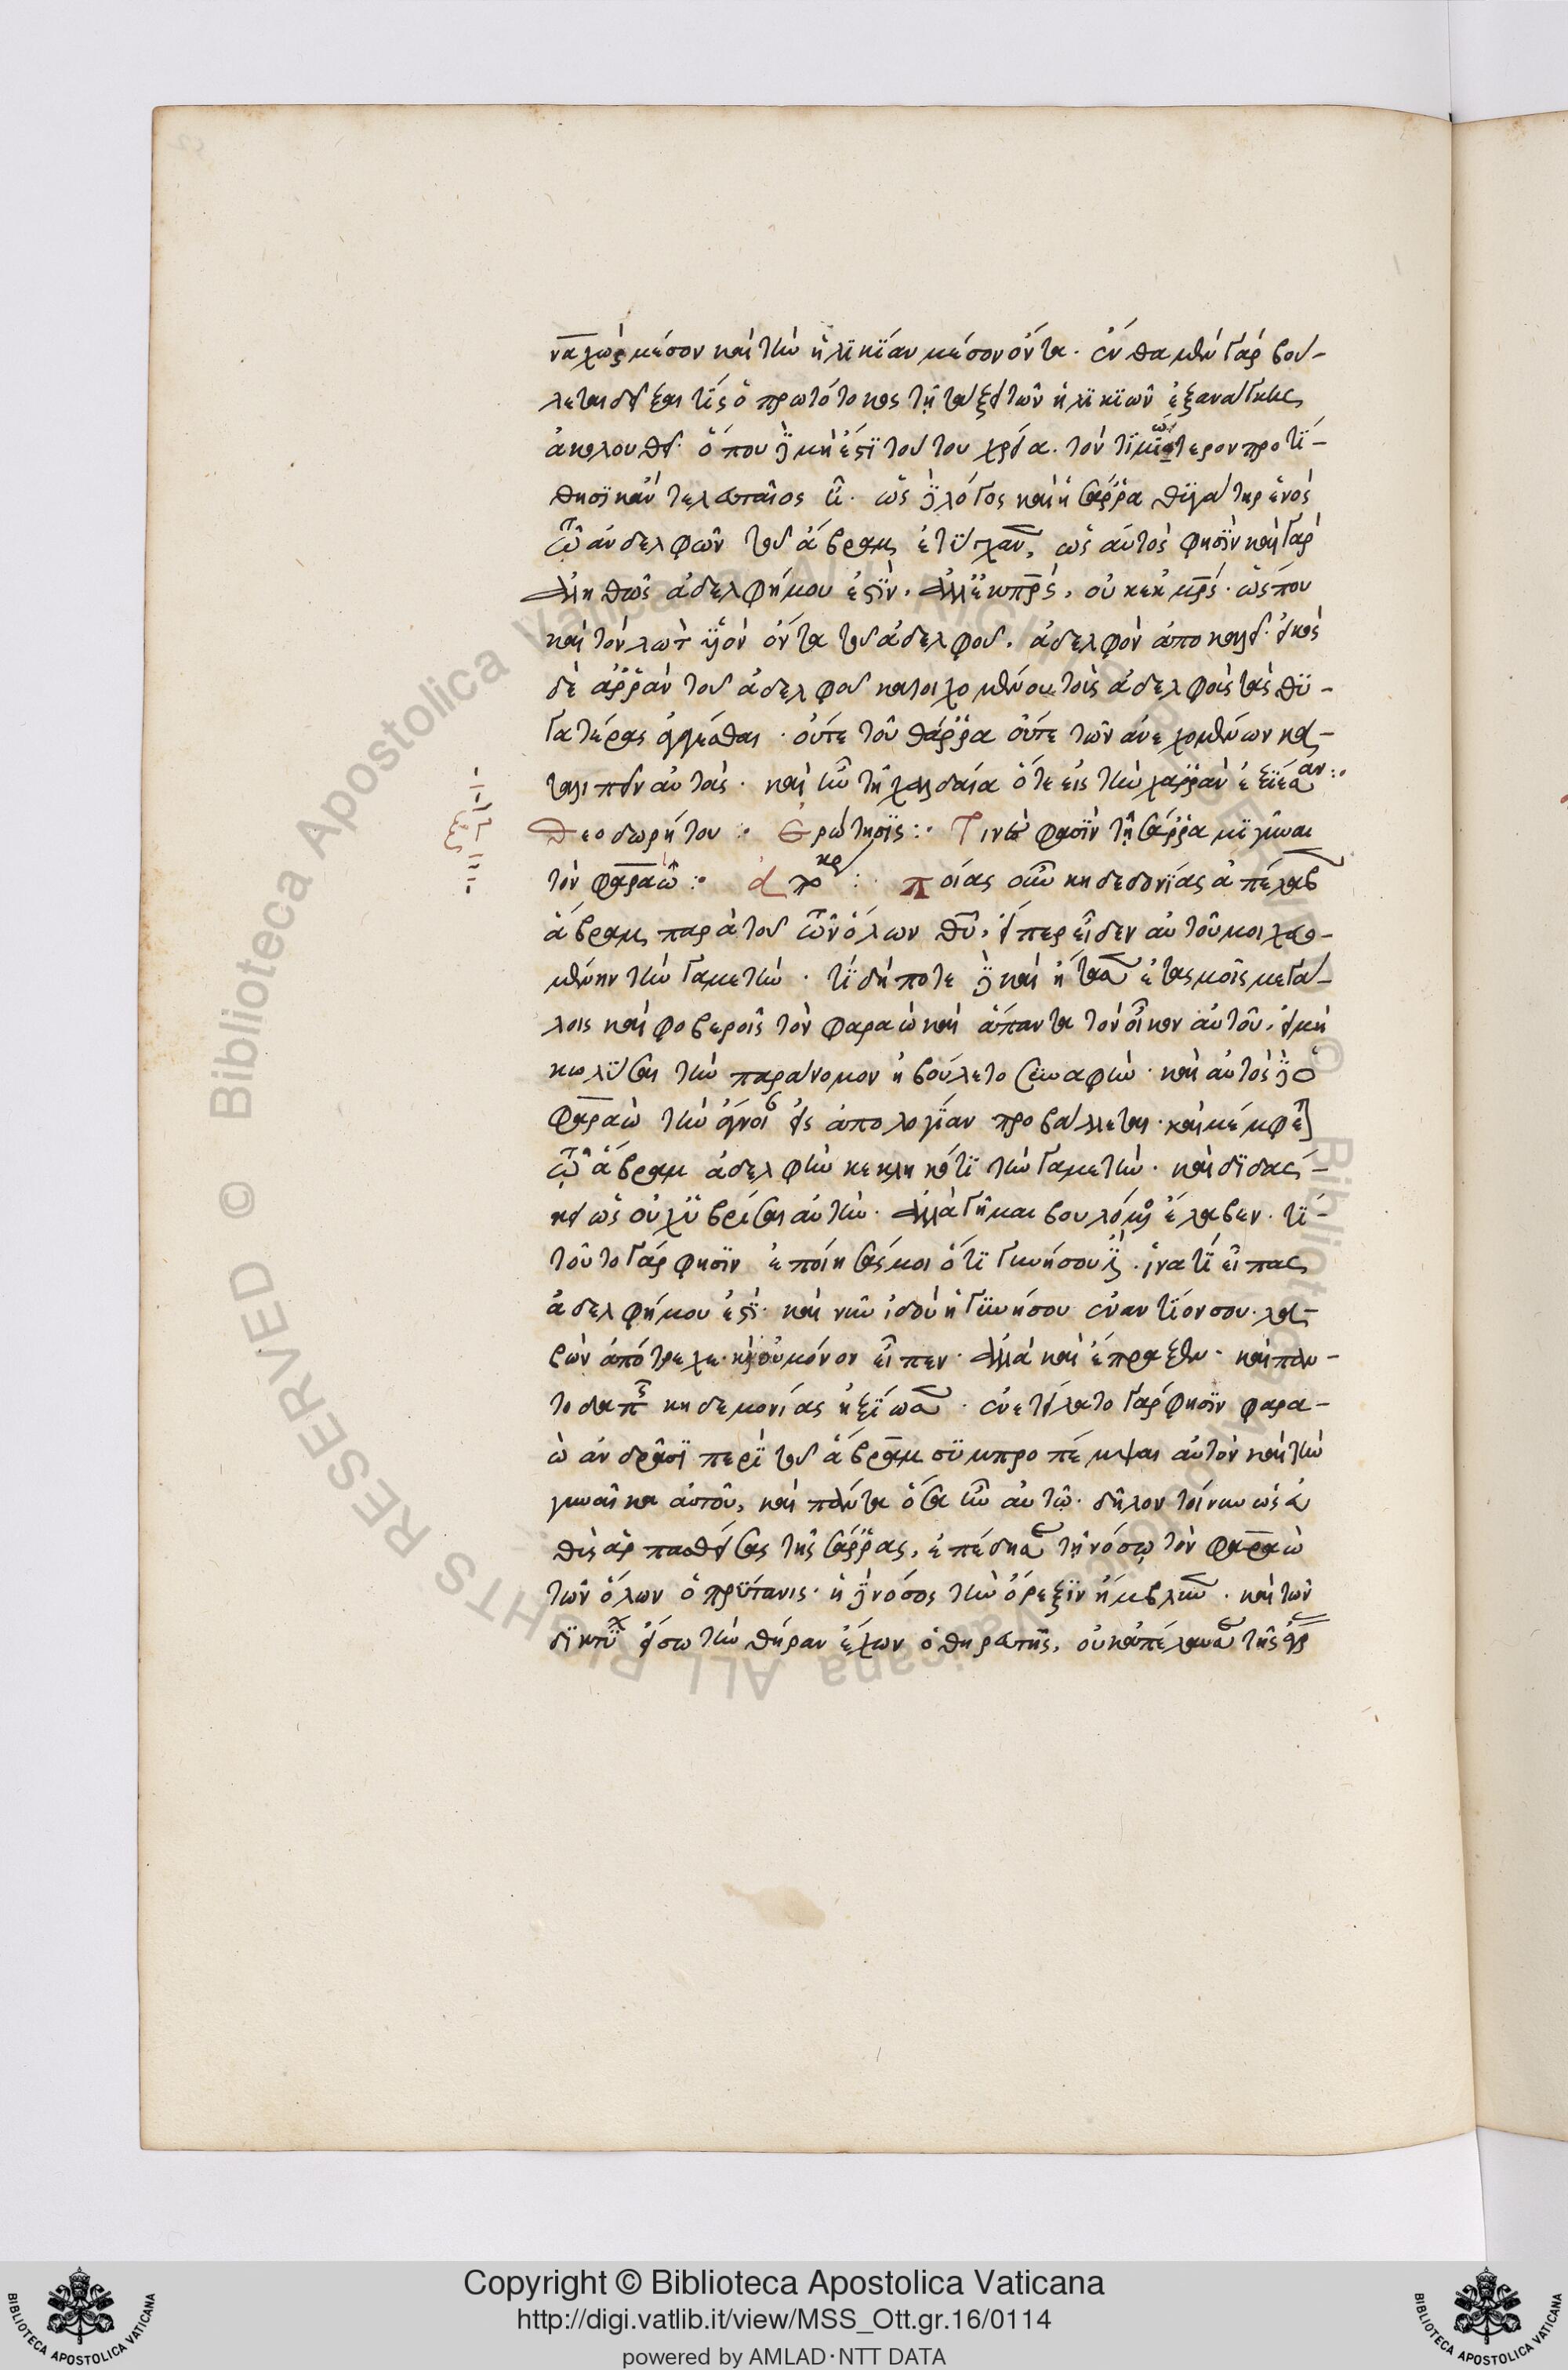 ναχὼρ μέσον καὶ τὴν ἡλϊκΐαν μέσον ὄντα. ἔνθα μὲν γὰρ βού-
λεται δεῖξαι τίς ὁ πρωτότοκος τῇ τάξει τῶν ἡλϊκϊῶν ἐξανάγκης
ἀκολουθεῖ. ὅπου δὲ μὴ ἔστϊ τούτου χρεία. τὸν τϊμϊώτερον προτΐ-
θησϊ κἂν τελευταῖος ᾖ. ὡς δὲ λόγος καὶ ἡ σάρρα θϋγάτηρ ἑνὸς
τῶν ἀνδελφῶν τοῦ ἄβραμ ἐτΰγχανεν, ὡς αὐτός φησϊν καὶ γὰρ
ἀληθῶς ἀδελφή μου ἐστϊν. ἀλλ' ἐκ πρς, οὐκ ἐκ μρς. ὥσπου
καὶ τὸν λωτ υἱὸν ὄντα τοῦ ἀδελφοῦ, ἀδελφὸν ἀποκαλεῖ. εἰκὸς
δὲ ἀρρὰν τοῦ ἀδελφοῦ κατοιχομένου τοῖς ἀδελφοῖς τὰς θϋ-
γατέρας ἠγγυᾶσθαι. οὔτε τοῦ θάρρα οὔτε τῶν ἀνεχομένων κα-
ταλιπεῖν αὐτάς. καὶ ἦν τῇ χαλδαία ὅτε εἰς τὴν χαρρὰν ἐξῄεσαν:
Θεοδωρήτου: Ἐρώτησϊς: Τινὲς φασὶν τῇ σάρρα μϊγῆναι
τὸν φαραώ: ἀπόκρ: ποίας οὖν κηδεμονϊας ἀπέλαβεν
ἄβραμ παρὰ τοῦ τῶν ὅλων θυ, εἴπερ εἶδεν αὐτοῦ μοιχευο-
μένην τὴν γαμετήν. τΐ δήποτε δὲ καὶ ἤτασεν ἐτασμοῖς μεγά-
λοις καὶ φοβεροῖς τὸν φαραὼ καὶ ἅπαντα τὸν οἶκον αὐτοῦ, εἰ μὴ
κωλῦσαι τὴν παράνομον ἠβούλετο συναφήν. καὶ αὐτὸς δὲ ὁ
φαραὼ τὴν ἄγνοιαν εἰς ἀπολογϊαν προβάλλεται. καὶ μέμφεται
τῷ ἄβραμ ἀδελφὴν κεκληκότϊ τὴν γαμετήν. καὶ διδάσ-
κει ὡς οὐχ ὑβρίσαι αὐτήν. ἀλλὰ γῆμαι βουλόμενος ἔλαβεν. τΐ
τοῦτο γὰρ φησϊν ἐποίησάς μοι ὅτϊ γυνή σου ἐστίν. ἱνατΐ εἶπας
ἀδελφή μου ἐστϊ. καὶ νῦν ἰδοὺ ἡ γϋνή σου ἐναντΐον σου. λα-
βὼν ἀπότρεχε. καὶ οὐ μόνον εἶπεν. ἀλλὰ καὶ ἔπραξεν. καὶ παν-
τοδαπῆς κηδεμονίας ἠξΐωσεν. ἐνετείλατο γάρ φησϊν φαρα-
ὼ ἀνδράσϊ περϊ τοῦ ἄβραμ σϋμπροπέμψαι αὐτὸν καὶ τὴν
γυναῖκα αὐτοῦ, καὶ πάντα ὅσα ἦν αὐτῷ. δῆλον τοίνυν ὡς εὐ
θὺς ἁρπασθείσας τῆς σάρρας, ἐπέδησε τῇ νόσῳ τὸν φαραὼ
τῶν ὅλων ὁ πρΰτανις. ἡ δὲ νόσος τὴν ὄρεξϊν ἤμβλυνεν. καὶ τῶν
δϊκτΰων εἴσω τὴν θήραν ἔχων ὁ θηρευτὴς, οὐκ ἀπέλαυσε τῆς ἄγρ